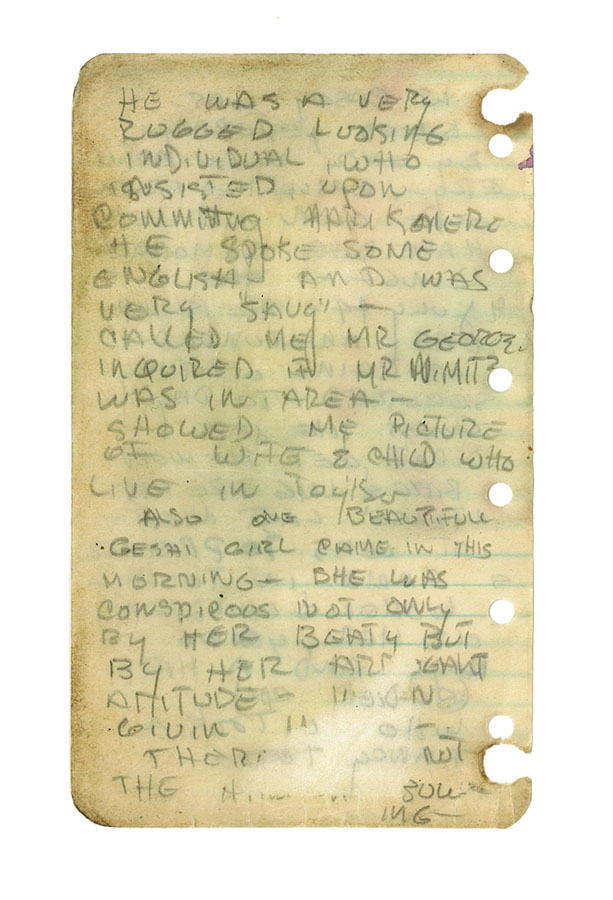 HE WAS A VERY
RUGGED LOOKING
INDIVIDUAL, WHO
INSISTED UPON
COMMITTING HARI KARERE
HE SPOKE SOME
ENGLISH - AND WAS
VERY "SAVG" -
CALLED ME MR GEORGE.
INQUIRED IF MR NIMITZ
WAS IN AREA -
SHOWED ME PICTURE
OF WIFE & CHILD WHO
LIVE IN TOKYO
ALSO ONE BEAUTIFULL
GESHI GIRL CAME IN THIS
MORNING - SHE WAS
CONSPICOUS NOT ONLY
BY HER BEATY BUT
BY HER ARROGANT
ATTITUDE -
THE
ING -